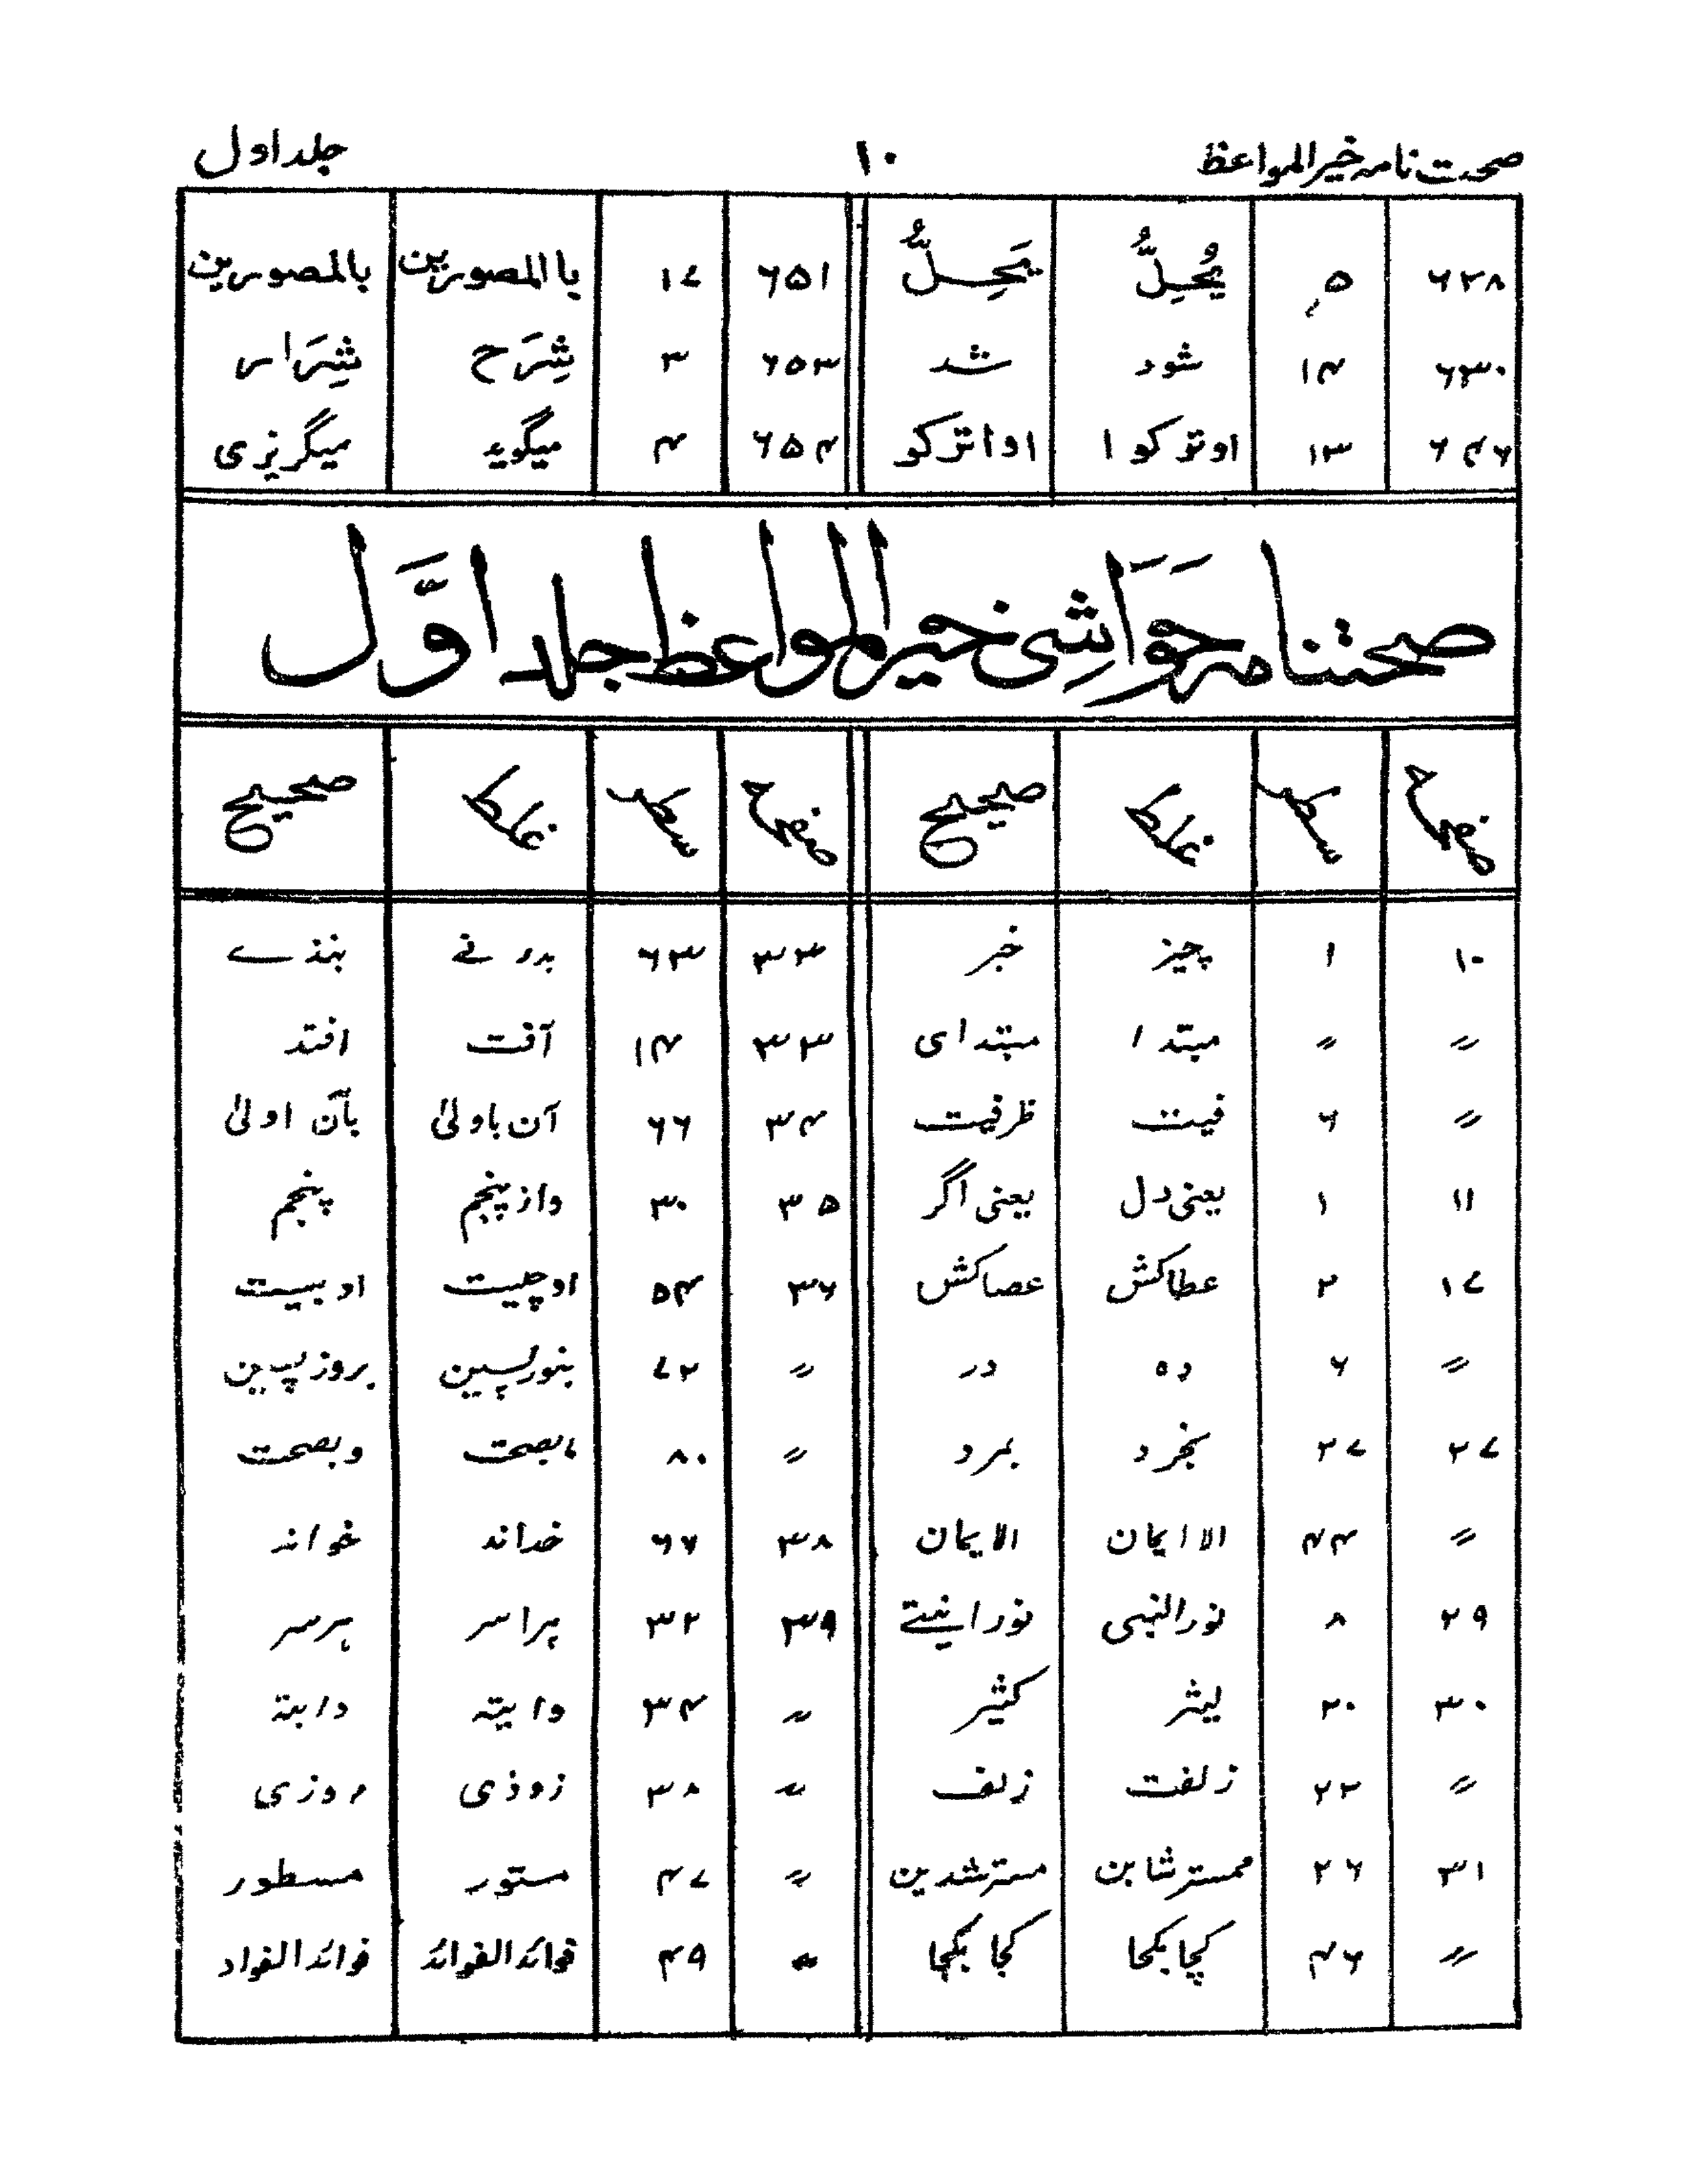 صحت نامہ خیر المواعظ ۱۰ جلد اول
۶۲۸ ۵ یُحِلُّ یَحِلُّ ۶۵۱ ۱۷ یا المصورین بالمصورین
۶۳۰ ۱۴ شود شد ۶۵۳ ۳ شِرَح شِرَار
۶۴۶ ۱۳ اوترکوا اواترکو ۶۵۴ ۴ میگوید میگریزی
صحتنامہ حَوَاشِی خیر المواعظ جلد اوَّل
صفحہ سطر غلط صحیح صفحہ سطر غلط صحیح
۱۰ ۱ چیز خبر ۳۳ ۶۳ بدرنے بنذے
〃 〃 مبتدا مبتدای ۳۳ ۱۴ آفت افتد
〃 ۶ فیت ظرفیت ۳۴ ۶۶ آن باولیٰ بآن اولیٰ
۱۱ ۱ یعنی دل یعنی اگر ۳۵ ۳۰ وازپنجم پنجم
۱۷ ۲ عطاکش عصاکش ۳۶ ۵۴ اوچیت اوبیت
〃 ۶ دہ در 〃 ۷۲ بنورپسین بروزپسین
۲۷ ۲۷ بخرد بمرد 〃 ۸۰ ءبصحت وبصحت
〃 ۴۴ الاایمان الایمان ۳۸ ۶۷ خداند خواند
۲۹ ۸ نورالنبی نورانیتے ۳۹ ۳۲ پراسر ہرسر
۳۰ ۲۰ لیثر کثیر 〃 ۳۴ وایتہ دابتہ
〃 ۲۲ زلفت زلف 〃 ۳۸ زوذی روزی
۳۱ ۲۶ ممسترشابن مسترشدین 〃 ۴۷ مستور مسطور
〃 ۴۶ کچابکجا کجابکجا 〃 ۴۹ فوائد الفوائد فوائد الفواد